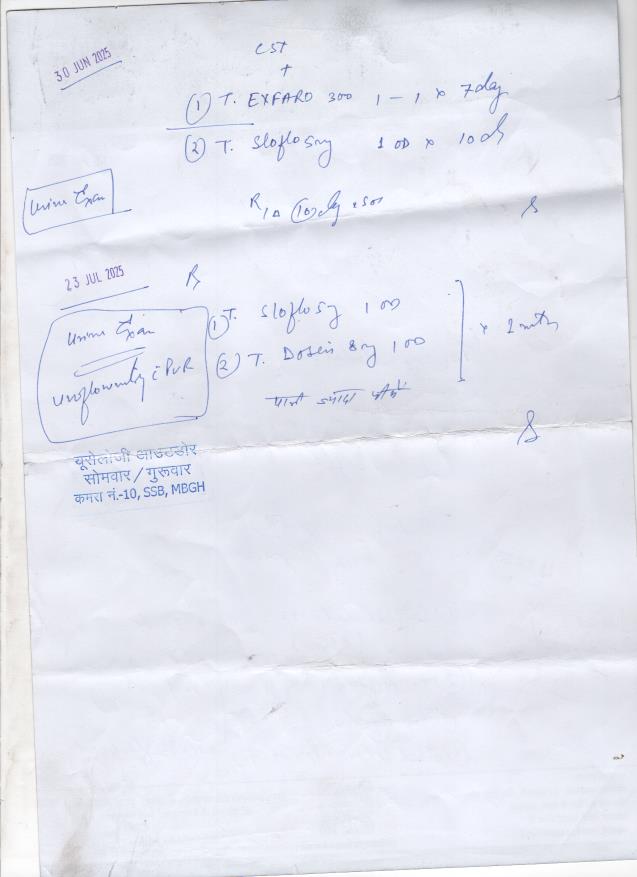 30 JUN 2025
CST
+
① T. EXFARO 300 1 - 1 x 7day
② T. Sloflosny 1 OD x 10d
Urine Exam
R/A 10day
23 JUL 2025
R
Urine Exam
Uroflowmetry c PVR
① T. Sloflosny 1 OD
② T. Dosin 8mg 1 OD
x 1 mth
पानी ज्यादा पीयें
यूरोलोजी आउटडोर
सोमवार / गुरूवार
कमरा नं.-10, SSB, MBGH